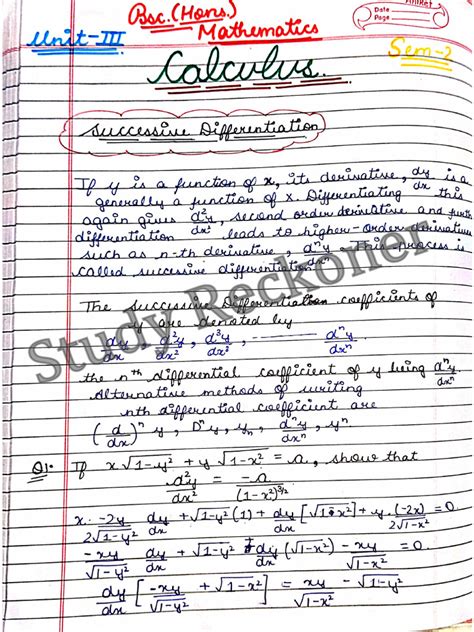 Bsc. (Hons.)
Mathematics
Unit-III
Date
Page
Sem-2
Calculus
Successive Differentiation
If y is a function of x, its derivative, dy/dx is
generally a function of x. Differentiating this
again gives d²y/dx², second order derivative and
differentiation leads to higher-order derivatives
such as n-th derivative, dⁿy/dxⁿ. This process is
called successive differentiation.
The successive Differentiation coefficients of
y are denoted by
dy/dx, d²y/dx², d³y/dx³, -------- dⁿy/dxⁿ
the nth differential coefficient of y being dⁿy/dxⁿ.
Alternative methods of writing
nth differential coefficient are
(d/dx)ⁿ y, Dⁿy, yₙ, dⁿy/dxⁿ, yⁿ
Q1. If x√1-y² + y√1-x² = a, show that
d²y/dx² = -a/(1-x²)^3/2
x. -2y/2√1-y² dy/dx + √1-y² (1) + dy/dx [√1-x²] + y. (-2x)/2√1-x² = 0
-xy/√1-y² dy/dx + √1-y² + dy/dx (√1-x²) - xy/√1-x² = 0.
dy/dx [-xy/√1-y² + √1-x²] = xy/√1-x² - √1-y²
Study Reckoner